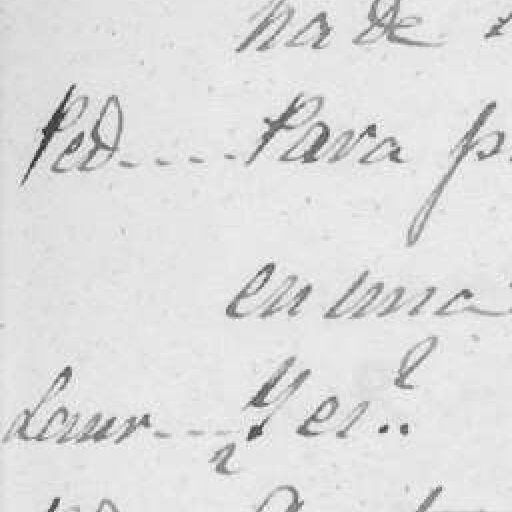 ha de
Ped.... Para
en una
Laur....¿Y en..?